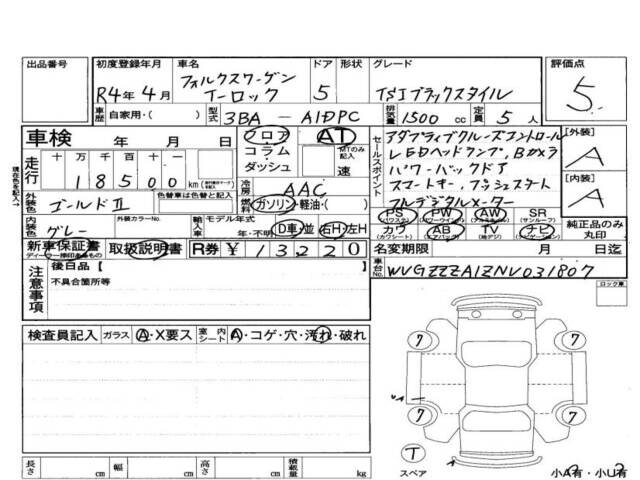 出品番号 初度登録年月 車名 ドア 形状 グレード 評価点
R4年4月 フォルクスワーゲン 5 TSIブラックスタイル 5
Tーロック
車歴 自家用・( ) 型式 3BA－A1DPC 排気量 1500cc 定員 5人
車検 年 月 日 フロア AT
コラム ATのみ記入
ダッシュ 速
走行 十万千百十 18500 km
冷房 AAC
外装色 ゴールドⅡ 色替車は色替と記入 燃料 ガソリン・軽油・( )
内装色 グレー 外装カラーNo. 輸入車 モデル年式 年・不明 D車・並 右H・左H
現在色を記入→
セールスポイント アダプティブクルーズコントロール
LEDヘッドランプ、Bカメラ
パワーバックドア
スマートキー、プッシュスタート
フルデジタルメーター
[外装] A
[内装] A
PS PW AW SR
(パワステ) (パワーウインド) (サンルーフ)
カワ AB TV ナビ
(カワシート) (エアバック) (ナビゲーション)
純正品のみ丸印
新車保証書 取扱説明書 R券 ¥13220 名変期限 月 日迄
注意事項 後日品【
不具合箇所等
車台No. WVGZZZA1ZNV031807
ロック車
検査員記入 ガラス A・X要ス 室内シート A・コゲ・穴・汚れ・破れ
7 7
7 7
T
スペア
小A有・小U有
長さ cm 幅 cm 高さ cm 積載量 kg